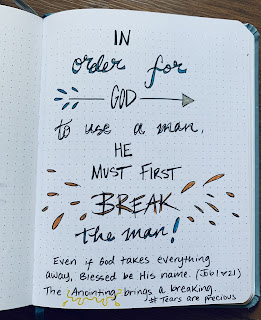 IN
order for
GOD
to use a man,
HE
MUST FIRST
BREAK
the man!
Even if God takes everything
away, Blessed be His name. (Job 1v21)
The Anointing brings a breaking.
# Tears are precious